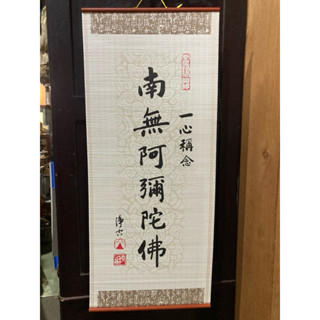 一心稱念
南無阿彌陀佛